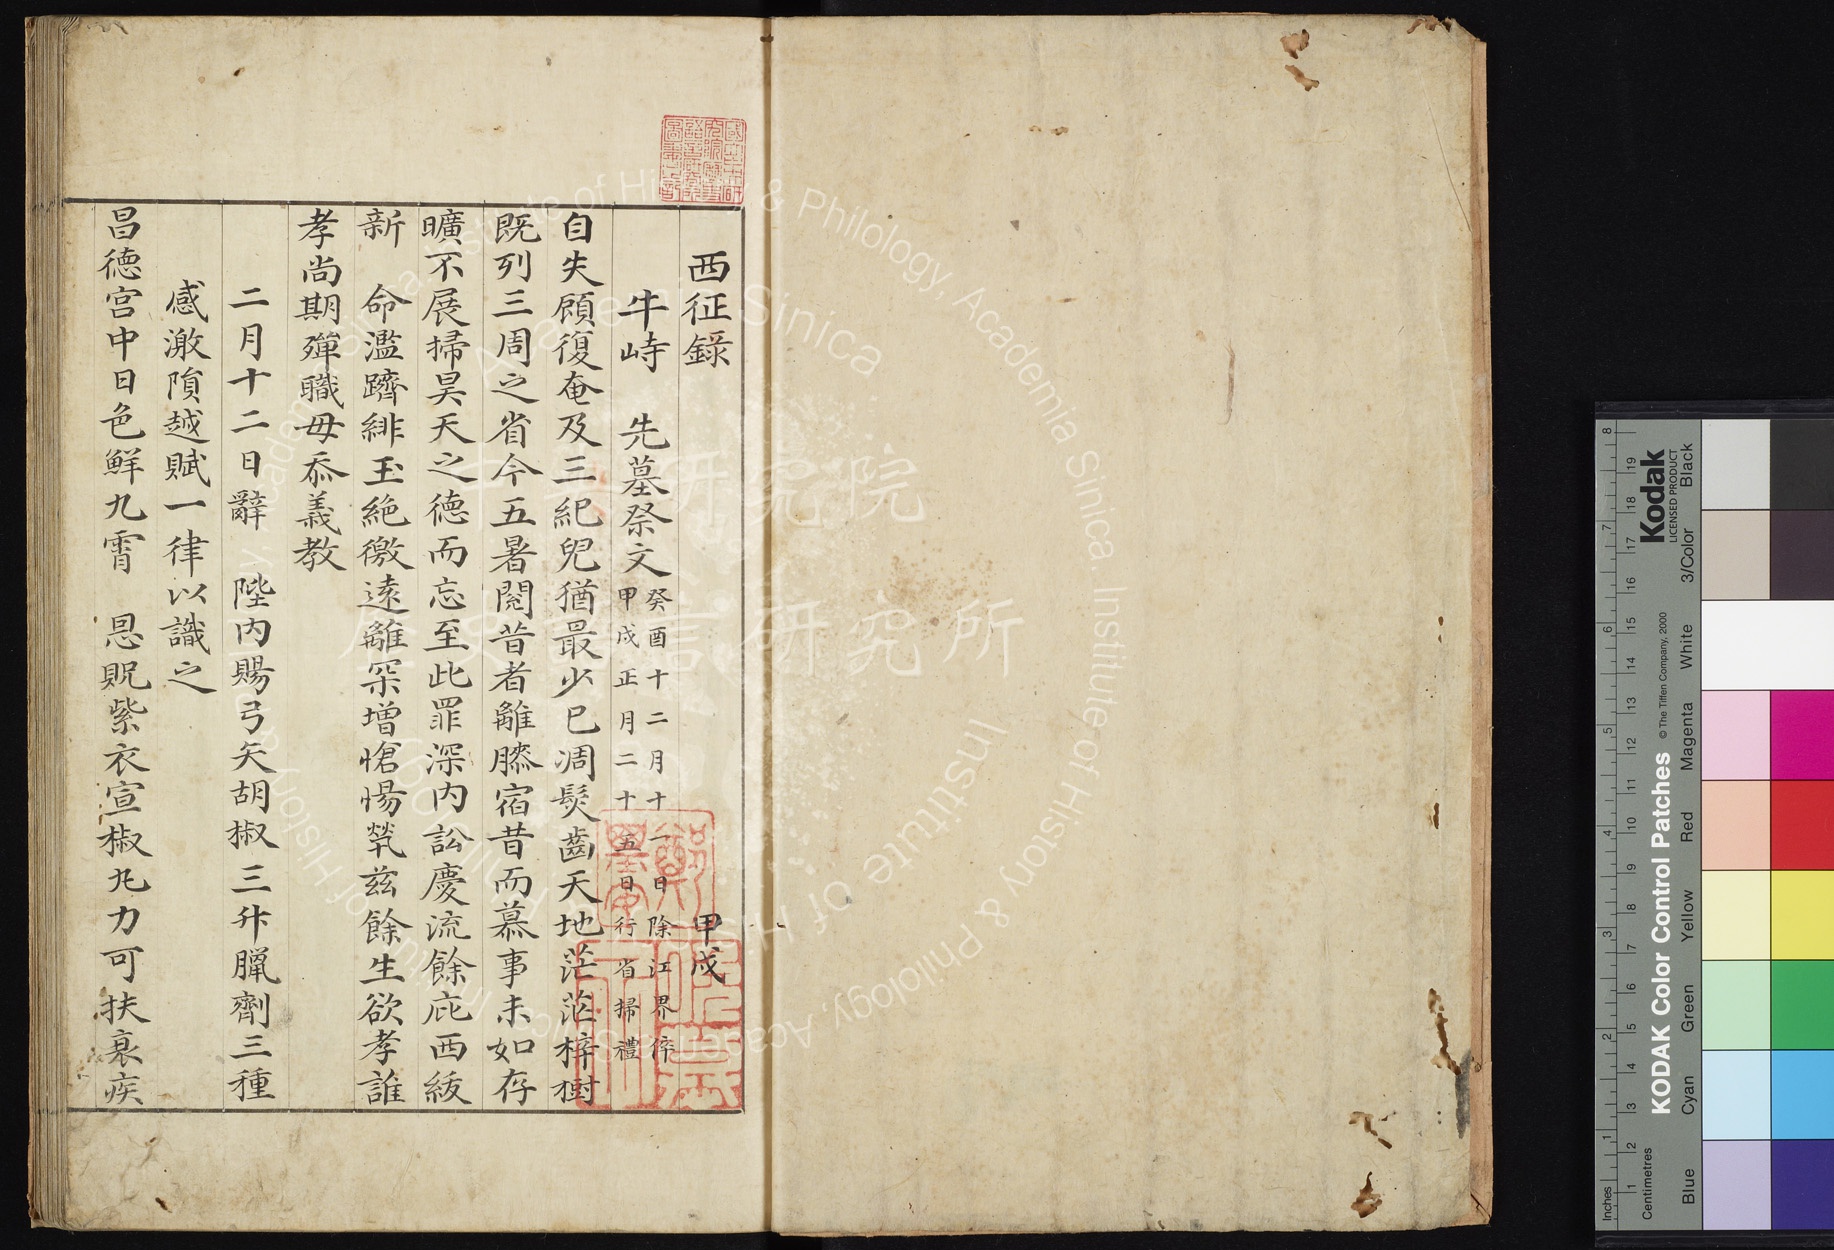 西征錄　甲戌
牛峙　先墓祭文 癸酉十二月十一日除江界倅 甲戌正月二十五日行省掃禮
自失顧復奄及三紀兒猶最少已凋髮齒天地茫茫梓樹
既列三周之省今五暑閱昔者離膝宿昔而慕事未如存
曠不展掃昊天之德而忘至此罪深內訟慶流餘庇西紱
新　命濫躋緋玉絶徼遠離罙增愴惕煢茲餘生欲孝誰
孝尚期殫職毋忝義教
二月十二日辭　陛內賜弓矢胡椒三升臘劑三種
感激隕越賦一律以識之
昌德宮中日色鮮九霄　恩貺紫衣宣椒丸力可扶衰疾
Institute of History & Philology, Academia Sinica
中央研究院
歷史語言研究所
KODAK Color Control Patches
© The Tiffen Company, 2000
Kodak
LICENSED PRODUCT
Inches
Centimetres
Blue
Cyan
Green
Yellow
Red
Magenta
White
3/Color
Black